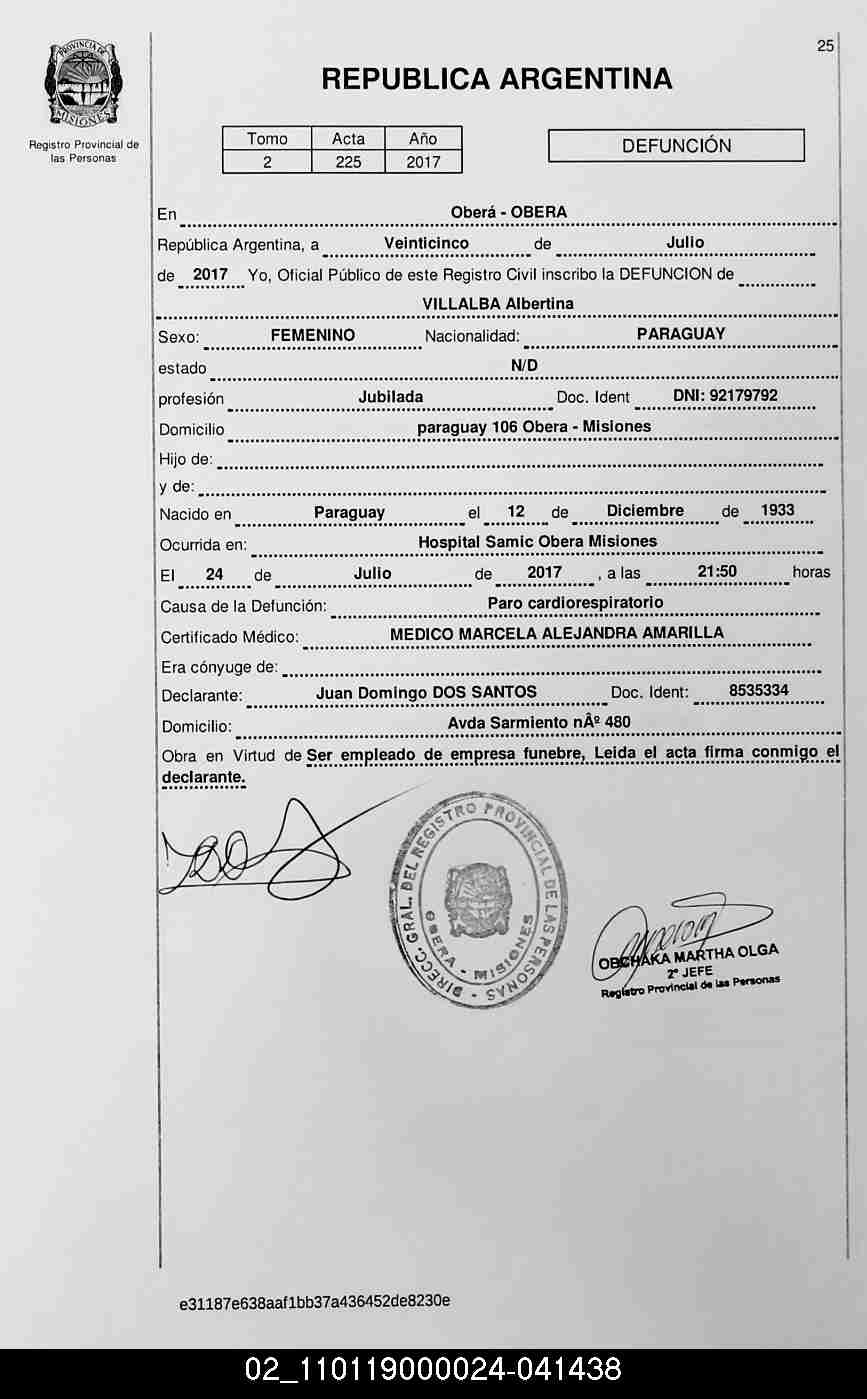 25
PROVINCIA DE
MISIONES
Registro Provincial de
las Personas
REPUBLICA ARGENTINA
Tomo Acta Año
2 225 2017
DEFUNCIÓN
En Oberá - OBERA
República Argentina, a Veinticinco de Julio
de 2017 Yo, Oficial Público de este Registro Civil inscribo la DEFUNCION de
VILLALBA Albertina
Sexo: FEMENINO Nacionalidad: PARAGUAY
estado N/D
profesión Jubilada Doc. Ident DNI: 92179792
Domicilio paraguay 106 Obera - Misiones
Hijo de:
y de:
Nacido en Paraguay el 12 de Diciembre de 1933
Ocurrida en: Hospital Samic Obera Misiones
El 24 de Julio de 2017 , a las 21:50 horas
Causa de la Defunción: Paro cardiorespiratorio
Certificado Médico: MEDICO MARCELA ALEJANDRA AMARILLA
Era cónyuge de:
Declarante: Juan Domingo DOS SANTOS Doc. Ident: 8535334
Domicilio: Avda Sarmiento nÂº 480
Obra en Virtud de Ser empleado de empresa funebre, Leida el acta firma conmigo el
declarante.
DIRECC. GRAL. DEL REGISTRO PROVINCIAL DE LAS PERSONAS
OBERA - MISIONES
OBCHAKA MARTHA OLGA
2° JEFE
Registro Provincial de las Personas
e31187e638aaf1bb37a436452de8230e
02_110119000024-041438